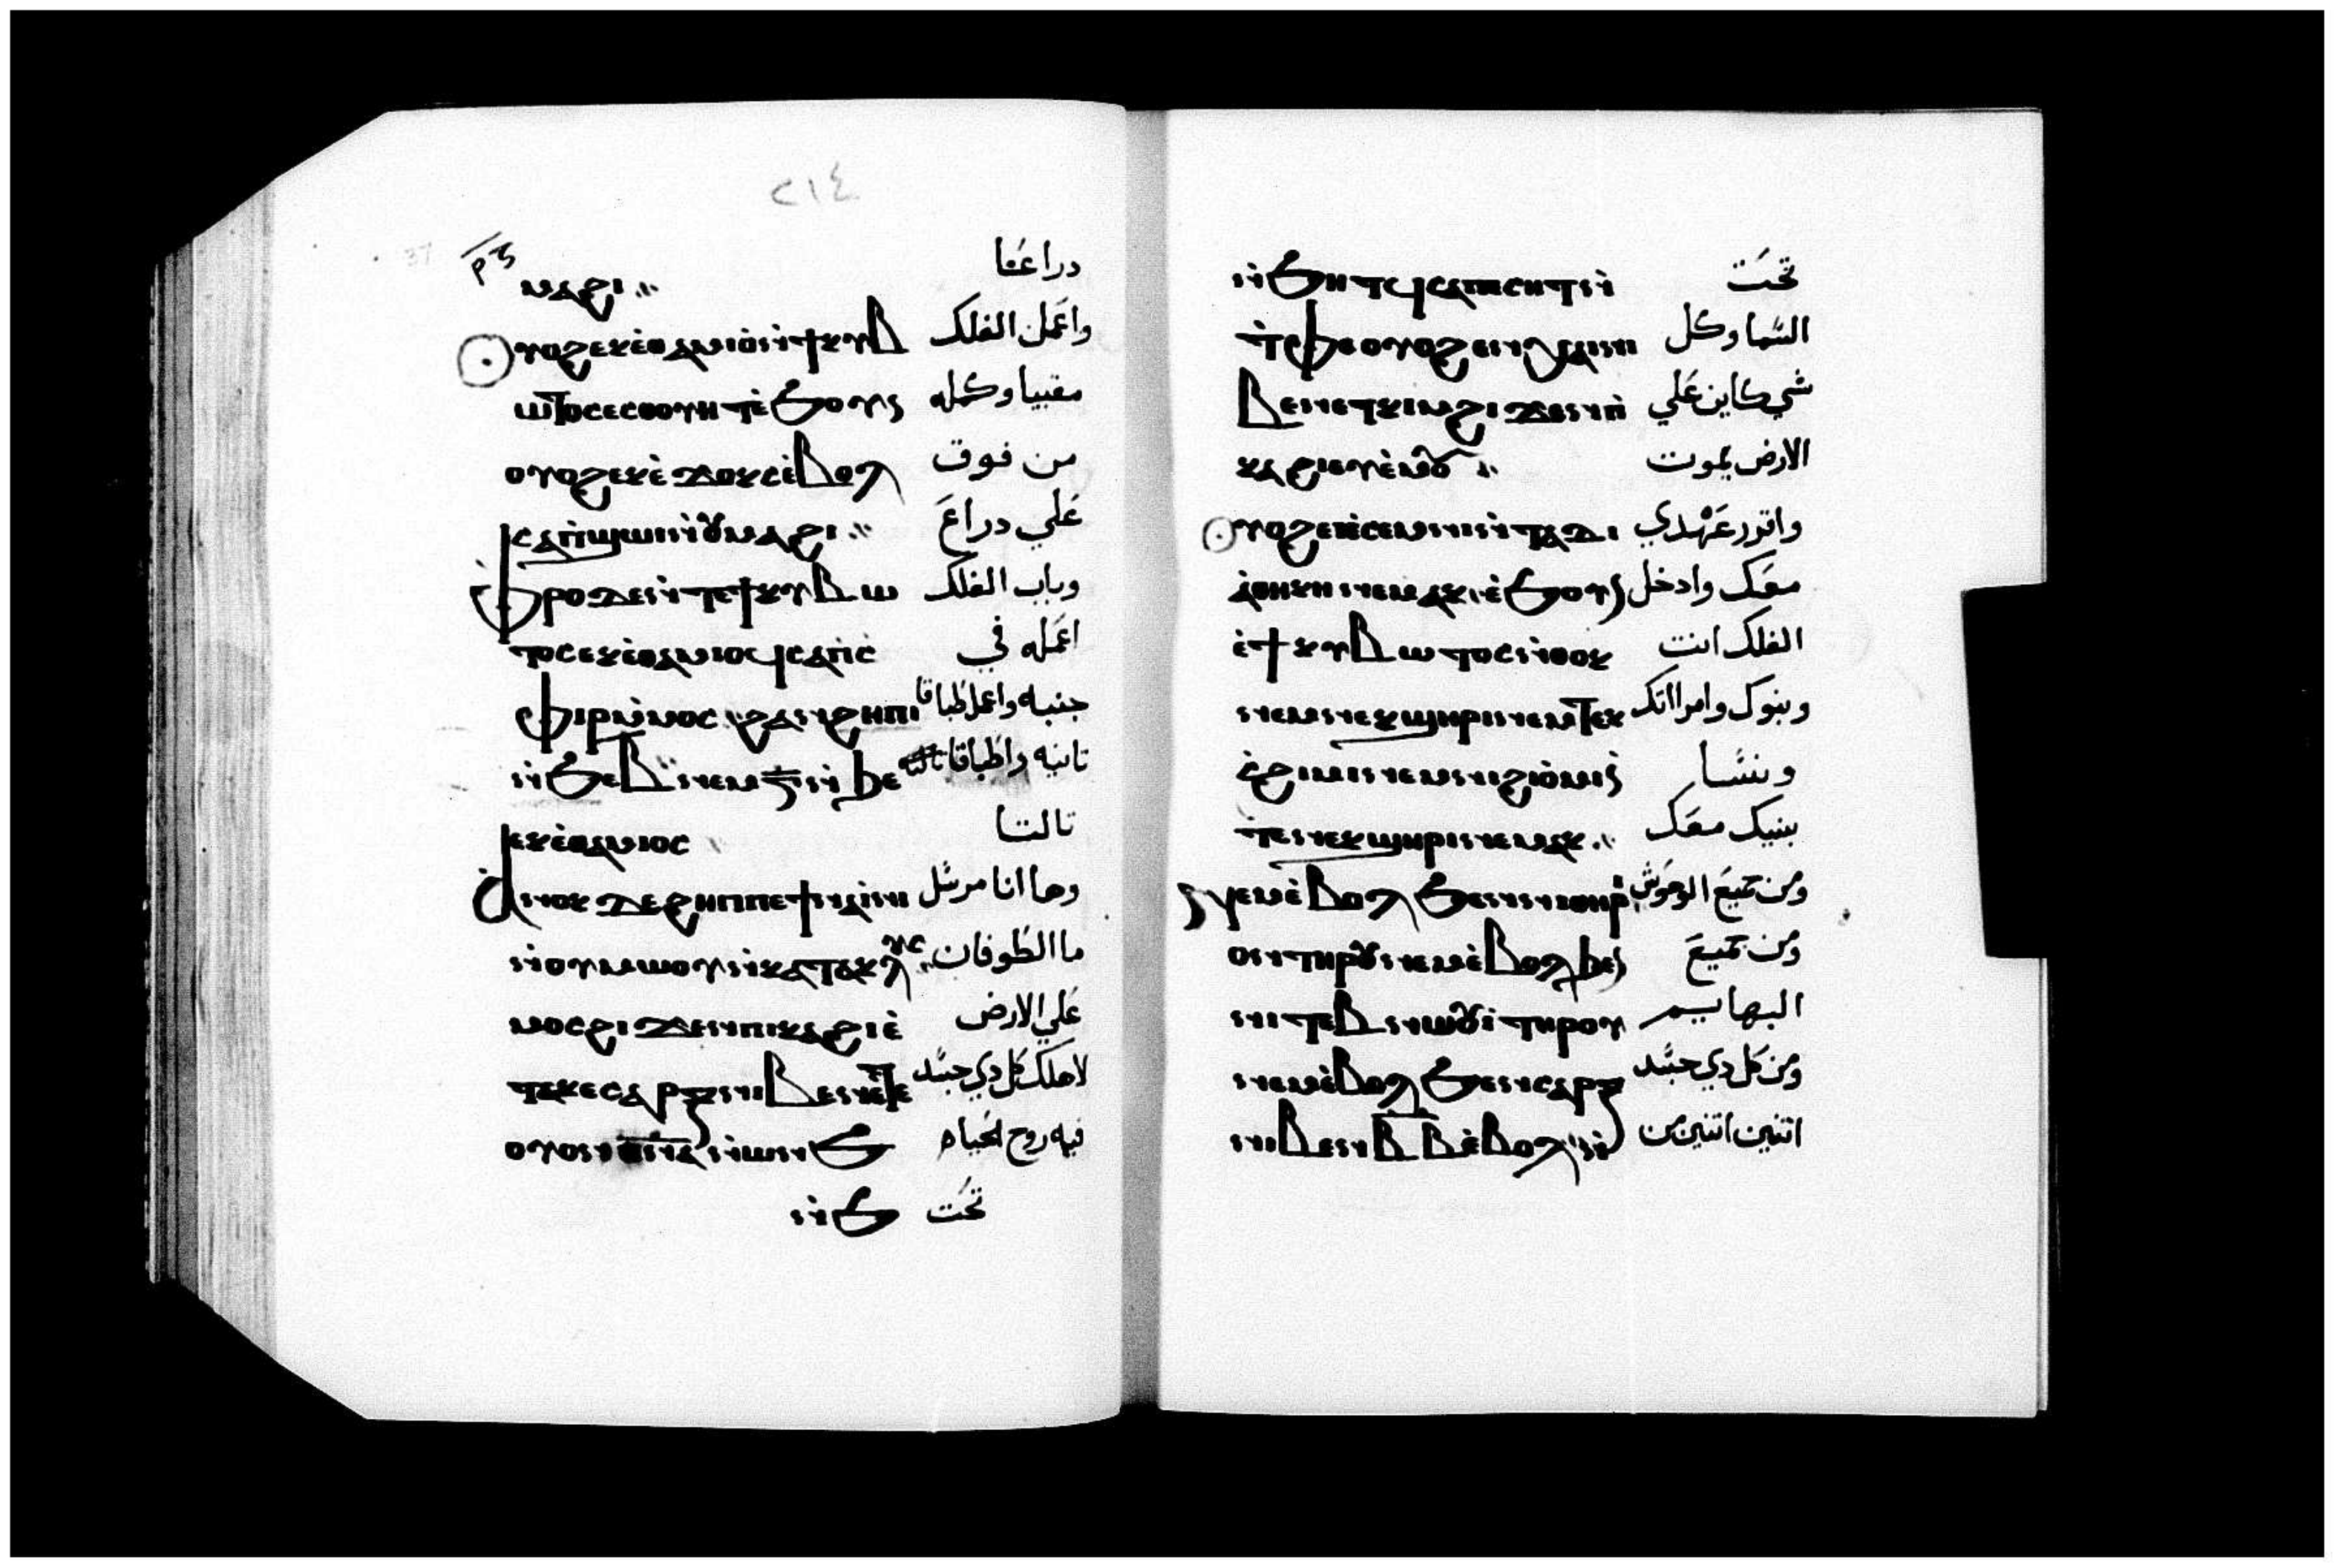 ٢١٤
ⲙⲁϩⲓ دراعا
ⲟⲩⲟϩ ⲉⲕⲉ̀ⲑⲁⲙⲓⲟ̀ ⲛ̀ϯⲕⲩⲃ واعمل الفلك
ⲱⲧⲟⲥ ⲉⲥⲑⲟⲩⲏⲧ ⲉ̀ϧⲟⲩⲛ مقبيا وكمله
ⲟⲩⲟϩ ⲉⲕⲉ̀ϫⲟⲕⲥ ⲉ̀ⲃⲟⲗ من فوق
ⲥⲁⲡ̀ϣⲱⲓ ⲛ̀ⲟⲩⲙⲁϩⲓ علي دراع
ⲫ̀ⲣⲟ ⲇⲉ ⲛ̀ⲧⲉ ϯⲕⲩⲃⲱ وباب الفلك
ⲧⲟⲥ ⲉⲕⲉ̀ⲑⲁⲙⲓⲟϥ ⲥⲁⲡ̀ⲥ̀ اعمله في
ⲫⲓⲣ ⲙ̀ⲙⲟⲥ ϩⲁⲛϩⲏⲡⲓ جنبه واعمل طباقا
ⲛ̀ϧⲉ ⲃ̅ ⲛⲉⲙ ⲅ̅ ⲛ̀ϩⲉ تانيه واطباقا
ⲉⲕⲉ̀ⲑⲁⲙⲓⲟⲥ تالتا
ⲁ̀ⲛⲟⲕ ⲇⲉ ϩⲏⲡⲡⲉ ϯⲛⲁⲓ̀ⲛⲓ وها انا مرسل
ⲛ̀ⲟⲩⲙⲱⲟⲩ ⲛ̀ⲕⲁⲧⲁⲕⲗⲩⲥ ما الطوفان
ⲙⲟⲥ ϩⲓϫⲉⲛ ⲡⲓⲕⲁϩⲓ ⲉ̀ علي الارض
ⲧⲁⲕⲉ ⲥⲁⲣⲝ ⲛⲓⲃⲉⲛ ⲉ̀ⲧⲉ لاهلك كل دي جسد
ⲟⲩⲟⲛ ⲡ̅ⲛ̅ⲁ̅ ⲛ̀ⲱⲛϧ فيه روح الحياه
ⲛ̀ϧ تحت
ⲛ̀ϧⲏⲧϥ ⲥⲁⲡⲉⲥⲏⲧ ⲛ̀ تحت
ⲧ̀ⲫⲉ ⲟⲩⲟϩ ⲉⲛⲭⲁⲓ ⲛⲓ السما وكل
ⲃⲉⲛ ⲉⲧⲭⲏ ϩⲓϫⲉⲛ ⲡ̀ شي كاين علي
ⲕⲁϩⲓ ⲉⲩⲉ̀ⲙⲟⲩ الارض يموت
ⲟⲩⲟϩ ⲉⲓⲉ̀ⲥⲉⲙⲛⲓ ⲛ̀ⲧⲁⲇⲓ واقرر عهدي
ⲁ̀ⲑⲏⲕⲏ ⲛⲉⲙⲁⲕ ⲉ̀ϧⲟⲩⲛ معك وادخل
ⲉ̀ϯⲕⲩⲃⲱⲧⲟⲥ ⲛ̀ⲑⲟⲕ الفلك انت
ⲛⲉⲙ ⲛⲉⲕϣⲏⲣⲓ ⲛⲉⲙ ⲧⲉⲕ وبنوك وامراتك
ⲥ̀ϩⲓⲙⲓ ⲛⲉⲙ ⲛⲓϩⲓⲟ̀ⲙⲓ ⲛ̀ ونسا
ⲧⲉ ⲛⲉⲕϣⲏⲣⲓ ⲛⲉⲙⲁⲕ بنيك معك
ⲛⲉⲙ ⲉ̀ⲃⲟⲗ ϧⲉⲛ ⲛⲓⲑⲏⲣⲓ ومن جميع الوحوش
ⲟⲛ ⲧⲏⲣⲟⲩ ⲛⲉⲙ ⲉ̀ⲃⲟⲗ ϧⲉⲛ ومن جميع
ⲛⲓⲧⲉⲃⲛⲱⲟⲩⲓ̀ ⲧⲏⲣⲟⲩ البهايم
ⲛⲉⲙ ⲉ̀ⲃⲟⲗ ϧⲉⲛ ⲥⲁⲣⲝ ومن كل دي جسد
ⲛⲓⲃⲉⲛ ⲃ̅ ⲃ̅ ⲉ̀ⲃⲟⲗ ⲛ̀ اتنين اتنين من